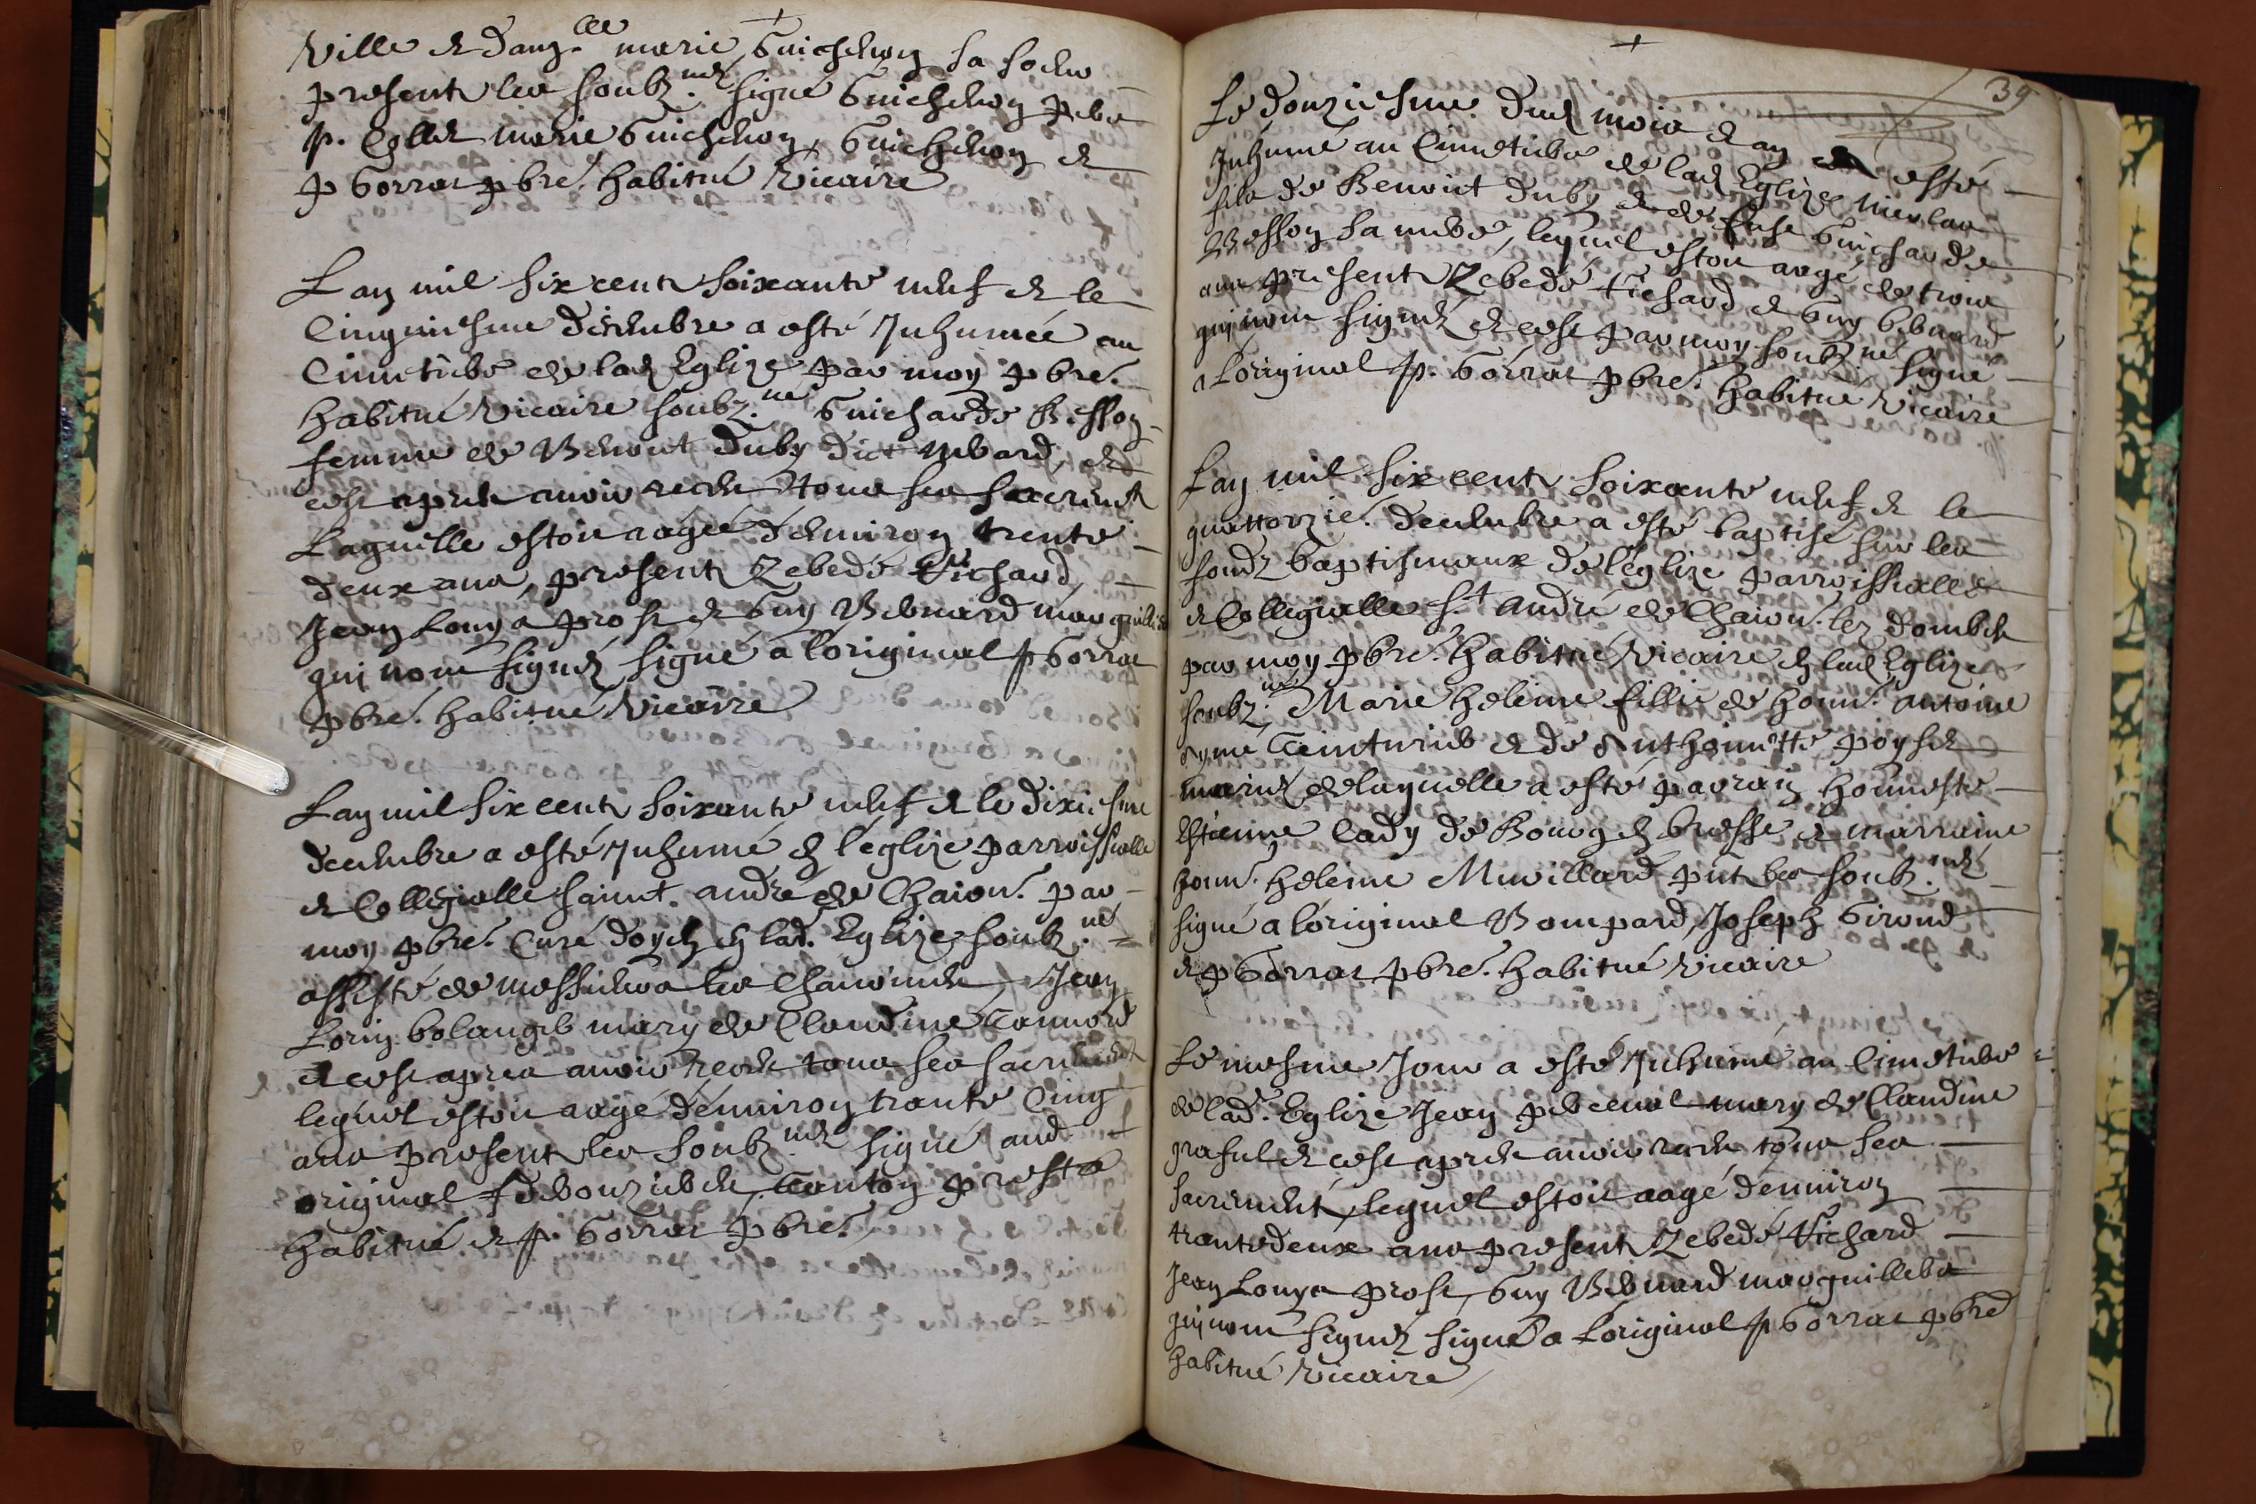 ville & dam.lle marie Guichenon sa soeur
present les soubz.nez signé Guichenon
p. Collet marie Guichenon, Guichenon &
p Gorrat pbre. habitué vicaire
Lan mil six cent soixante neuf & le
Cinquiesme decembre a esté Inhumée au
Cimetiere de lad Eglize par moy pbre.
habitué vicaire soubz.né Guicharde Besson
femme de Benoit Duby dict &
ce apres avoir receu tous ses sacrements
Laquelle estoit aagée denviron trente
deux ans, present Zebedé Fichard,
Jean Louys Prost & Guy Bernard marguilliers
qui nont signez signé a loriginal p Gorrat
pbre. habitué vicaire
Lan mil six cent soixante neuf & le dixiesme
decembre a esté Inhumé en léglize parroissialle
& Collegialle saint. andré de Chaion. par
moy pbre. Curé doyen en lad. Eglize soubz.né
assisté de messieurs les Chanoines, Jean
Lorin bolanger mary de Claudine Connord
& ce apres avoir receu tous ses sacrements
lequel estoit aagé dénviron trante Cinq
ans present les soubz.nez signé aud
original f prestre
habitué & p. Gorrat pbre.
39
Le douziesme dud mois & an a esté
Inhumé au Cimetiere de lad Eglize nicolas
fils de Benoict duby & de Guicharde
Besson sa mere, lequel estoit aagé de trois
ans present Zebedé Fichard & Guy Bernard
qui nont signez & ce par moy soubz.né signé
a loriginal p. Gorrat pbre. habitué vicaire
Lan mil six cent soixante neuf & le
quattorzié. decembre a esté baptisé sur les
fondz baptismaux de léglize parroissialle
& Collegialle st. André de Chaion. lez dombes
par moy pbre. habitué vicaire en lad Eglize
soubz.né Marie heleine fillie de honn. antoine
ayme teinturier & de Anthoinette poysel
mariez de laquelle a esté parrain honneste
Estienne Cady de Bourg en bresse & marraine
honn. heleine Muvillard pnt les soubz.nez
signé a loriginal Bompard, Joseph Girond
& p Gorrat pbre. habitué vicaire
Le mesme Jour a esté Inhumé au Cimetiere
de lad. Eglize Jean mary de Claudine
& ce apres avoir receu tous ses
sacrement, lequel estoit aagé denviron
trante deux ans present Zebedé Fichard
Jean Louys Prost, Guy Bernard marguilliers
qui nont signez signé a loriginal p Gorrat pbre
habitué vicaire